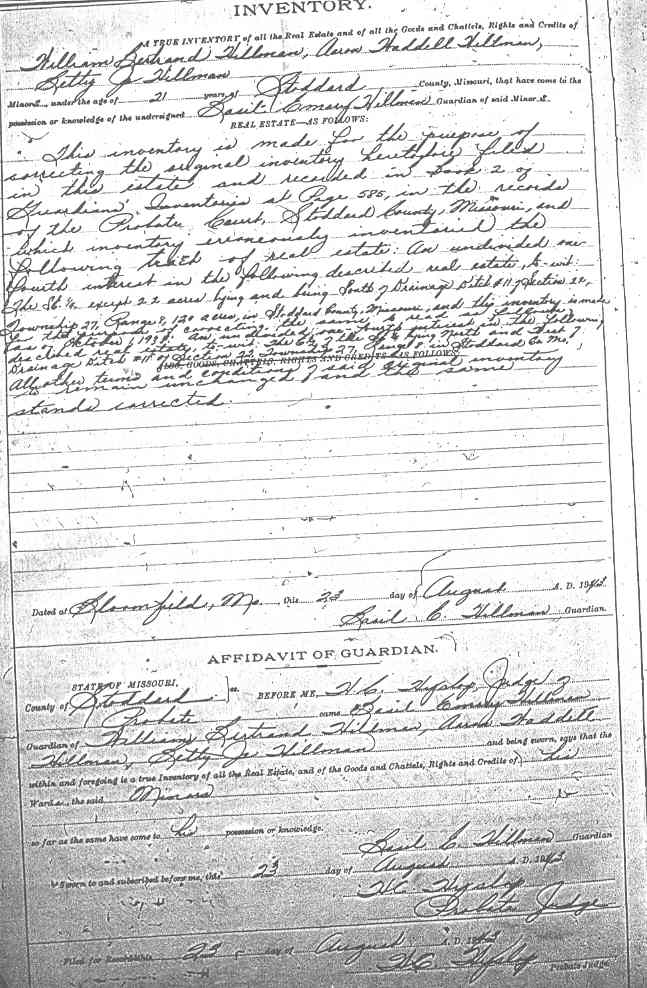 INVENTORY.
A TRUE INVENTORY of all the Real Estate and of all the Goods and Chattels, Rights and Credits of
William Bertrand Hillman, Aaron Waddell Hillman,
Betty Jo Hillman
Minors, under the age of 21 years, of Stoddard County, Missouri, that have come to the
possession or knowledge of the undersigned Basil Emory Hillman Guardian of said Minors.
REAL ESTATE—AS FOLLOWS:
This inventory is made for the purpose of
correcting the original inventory heretofore filed
in this estate and recorded in book 2 of
Guardians' Inventories at Page 585, in the records
of the Probate Court, Stoddard County, Missouri, and
which inventory erroneously inventoried the
following tract of real estate: An undivided one
fourth interest in the following described real estate, to-wit:
The SE ¼ except 22 acres lying and being South of Drainage Ditch #11 of Section 22,
Township 27, Range 8, 120 acres, in Stoddard County, Missouri, and this inventory is made
for the purpose of correcting the same to read as follows,
as of October 1, 1938, An undivided one-fourth interest in the following
described real estate, to-wit: The of the SE ¼ lying North and West of
Drainage Ditch #11 of Section 22, Township 27, Range 8 in Stoddard Co Mo.,
GOODS, CHATTELS, RIGHTS AND CREDITS AS FOLLOWS:
All other terms and conditions of said original inventory
to remain unchanged and the same
stands corrected.
Dated at Bloomfield, Mo. this 23 day of August A. D. 194
Basil E. Hillman, Guardian.
AFFIDAVIT OF GUARDIAN.
STATE OF MISSOURI,
County of Stoddard ss. BEFORE ME, H.C. Hyslop, Judge of
Probate came Basil Emory Hillman
Guardian of William Bertrand Hillman, Aaron Waddell
Hillman, Betty Jo Hillman and being sworn, says that the
within and foregoing is a true Inventory of all the Real Estate, and of the Goods and Chattels, Rights and Credits of his
Wards, the said Minors
so far as the same have come to his possession or knowledge.
Basil E. Hillman Guardian
Sworn to and subscribed before me, this 23 day of August A. D. 194
H.C. Hyslop
Probate Judge
Filed for Record this 23 day of August A. D. 194
H.C. Hyslop Probate Judge.